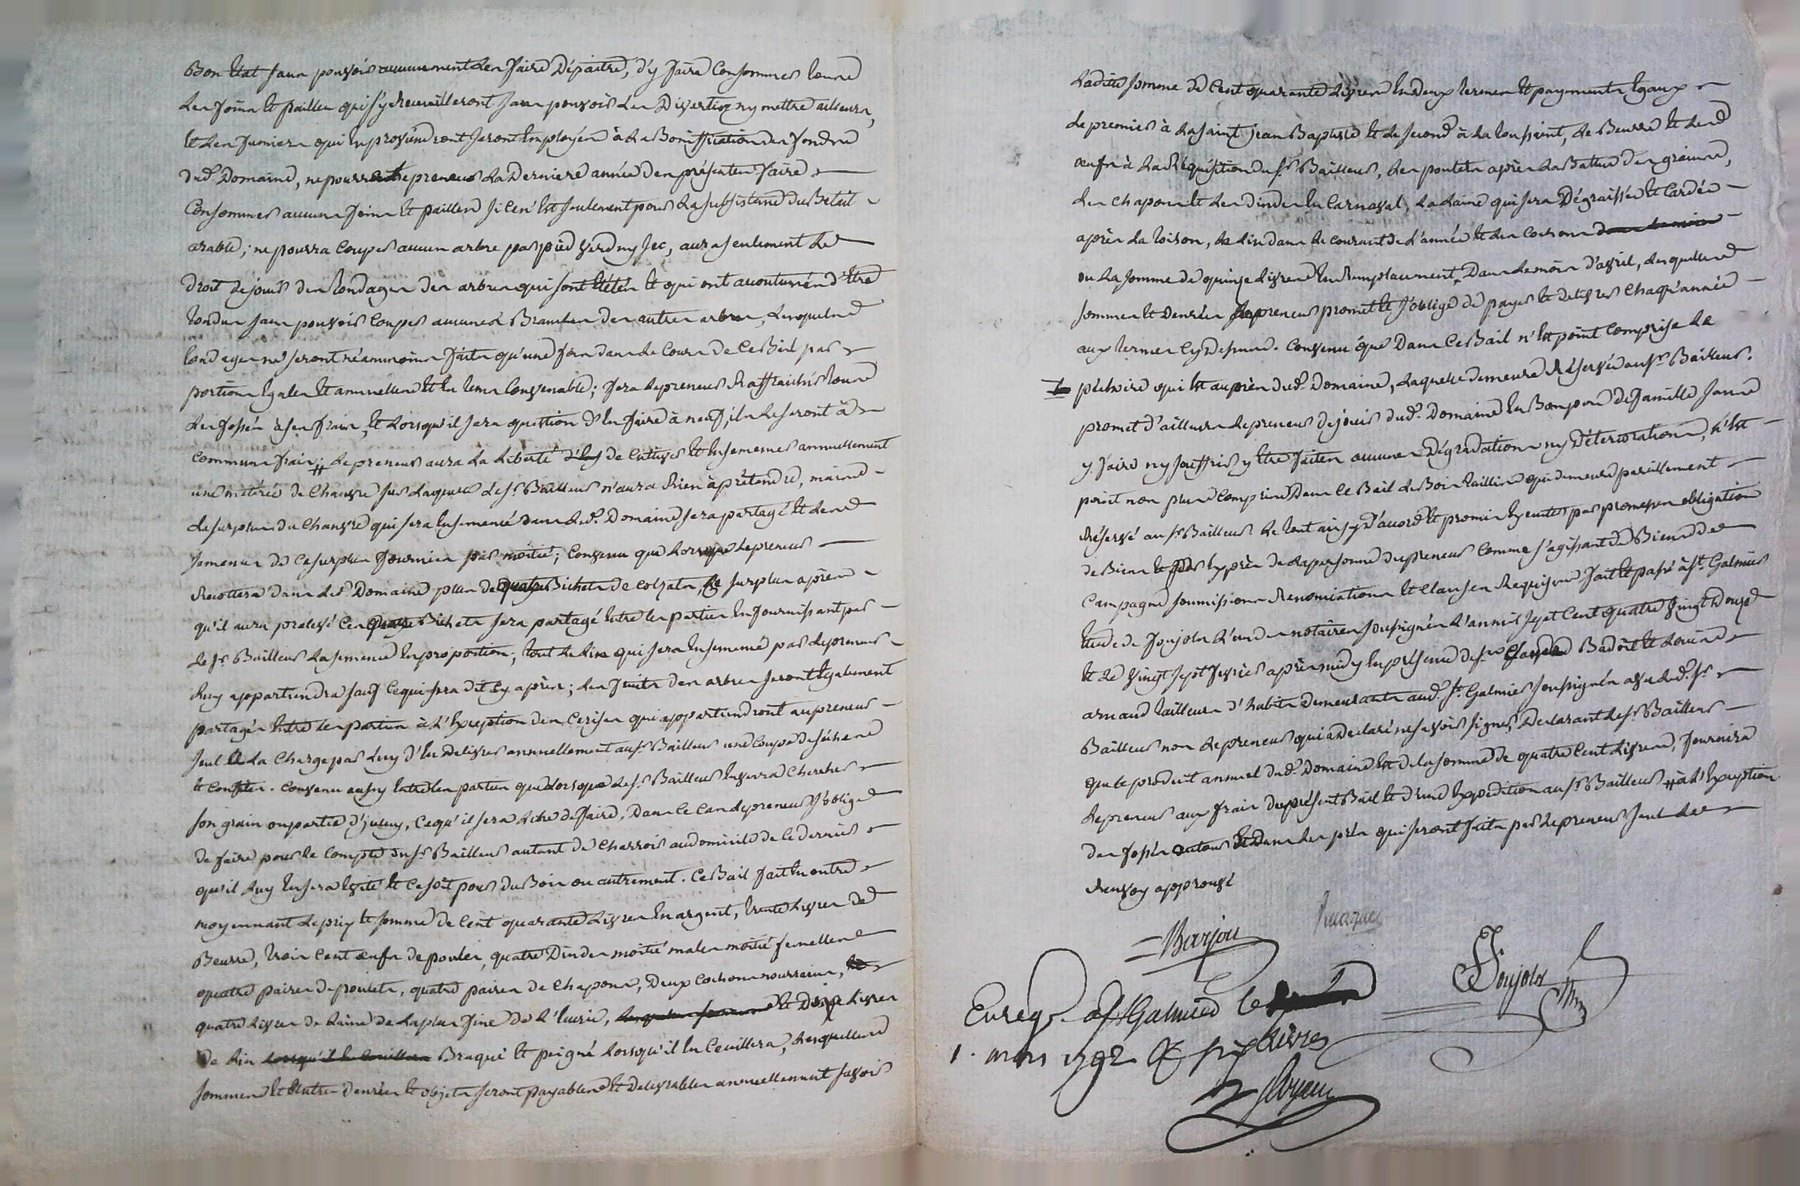 Bon état sans pouvoir aucunement les faire dépaitre, d'y faire consommer tous
les foins et pailles qui s'y recueilleront sans pouvoir les divertir ny mettre ailleurs,
et les fumiers qui en proviendront seront employés à la bonniffication des fonds
dud. Domaine, ne pourra le preneur la derniere année des présentes faire
consommer aucuns foins et pailles si ce n'est seulement pour la subsistance du Bétail
arable; ne pourra couper aucun arbre par pied verd ny sec, aura seulement le
droit de jouir des tondages des arbres qui sont étetés et qui ont accoutumés d'être
tondus sans pouvoir couper aucunes Branches des autres arbres, lesquels
tondages ne seront néanmoins faits qu'une fois dans le cours de ce Bail par
portions égales et annuelles et en tems convenable; fera le preneur raffraichir tous
les fossés à ses frais, et lorsqu'il sera question d'en faire à neuf, ils se feront à
communs frais; le preneur aura la liberté de cultiver et ensemencer annuellement
une métérée de chanvre sur laquelle le sr. Bailleur n'aura rien à prétendre, mais
le surplus du chanvre qui sera ensemencé dans led. Domaine sera partagé et les
semences de ce surplus fournies par moitié; convenu que lorsque le preneur
recoltera dans led. Domaine plus de quatre Bichets de colzats le surplus après
qu'il aura prélevé ces quatre Bichets sera partagé entre les parties en fournissant par
le sr. Bailleur la semence en proportion; tout le lin qui sera ensemencé par le preneur
luy appartiendra sauf ce qui sera dit cy après; les fruits des arbres seront également
partagés entre les parties à l'exception des cerises qui appartiendront au preneur
seul à la charge par luy d'en delivrer annuellement au sr. Bailleur une coupe de séches
et confites. Convenu aussy entre les parties que lorsque le sr. Bailleur enverra chercher
son grain ou partie d'yceluy, ce qu'il sera libre de faire, dans ce cas le preneur s'oblige
de faire pour le compte du sr. Bailleur autant de charrois au domicile de ce dernier
qu'il luy en sera évité et ce soit pour du Bois ou autrement. Ce Bail fait en outre
moyennant le prix et somme de cent quarante livres en argent, trente livres de
Beurre, trois cent œufs de poules, quatre dindes moitié males moitié femelles
quatre paires de poulets, quatre paires de chapons, deux cochons nourrains,
quatre livres de laine de la plus fine de l'écurie, et dix livres
de lin Braqué et peigné lorsqu'il en ceuillera, lesquelles
sommes et autres denrées et objets seront payables et delivrables annuellement savoir
Ladite somme de cent quarante livres en deux termes et payments égaux
le premier à la saint jean Baptiste et le second à la toussaint, le Beurre et les
œufs à la réquisition du sr. Bailleur, les poulets après la Battue des grains,
les chapons et les dindes en carnaval, la laine qui sera dégraissée et cardée
après la toison, le lin dans le courant de l'année et les cochons
ou la somme de quinze livres en remplacement dans le mois d'avril, lesquelles
sommes et denrées le preneur promet et s'oblige de payer et delivrer chaqu'année
aux termes cy dessus. Convenu que dans ce Bail n'est point comprise la
pechoire qui est au près dud. Domaine, laquelle demeure réservée au sr. Bailleur.
promet d'ailleurs le preneur de jouir dud. Domaine en Bon pere de famille sans
y faire ny souffrir y être faites aucunes dégradations ny déteriorations, n'est
point non plus compris dans ce Bail le Bois taillis qui demeure pareillement
réservé au sr. Bailleur. Le tout ainsy d'accord et promis exécuter par promesses obligation
de Biens et par exprès de la personne du preneur comme s'agissant de Biens de
campagne soumissions renonciations et clauses requises fait et passé à St. Galmier
étude de Poujols l'un des notaires soussignés l'an mil sept cent quatre vingt douze
et le vingt sept fevrier après midy en présence de sr. Claude Badoil et Louis
arnaud tailleurs d'habits demeurants aud. St. Galmier soussignés avec led. sr.
Bailleur non le preneur qui a declaré ne savoir signer, declarant le sr. Bailleur
que le produit annuel dud. Domaine est de la somme de quatre cent livres, fournira
le preneur aux frais du présent Bail et d'une expedition au sr. Bailleur à l'exception
des fossés autour et dans les prés qui seront faits par le preneur seul
renvoy approuvé
Barjou
Poujols
Enreg. à St Galmier le
1. mars 1792 R six livres